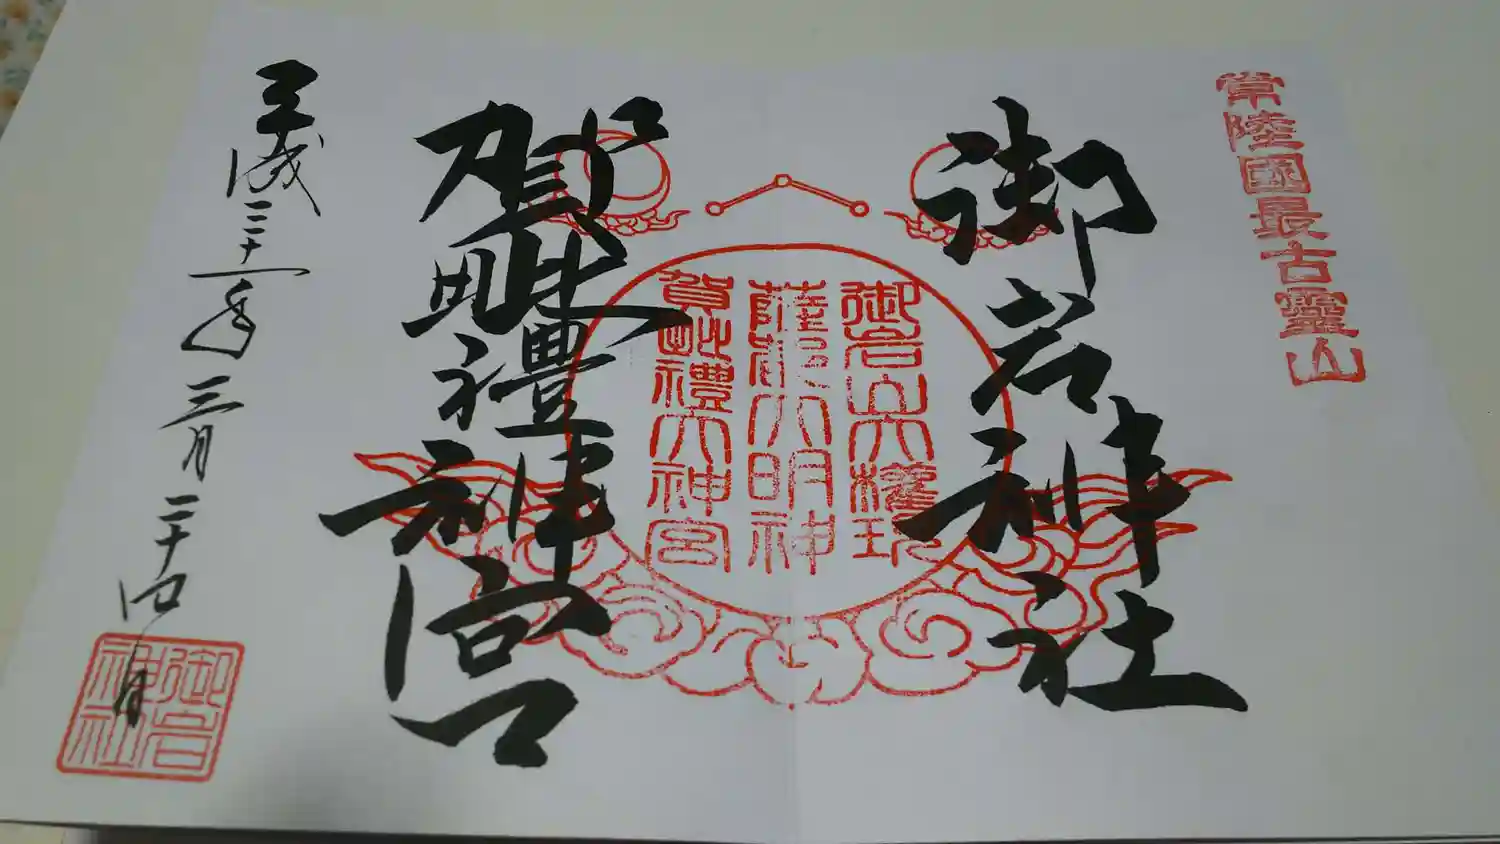 常陸國最古靈山
御岩神社
御岩山大権現
薩都大明神
賀毗禮大神宮
賀毗禮神宮
平成三十一年三月二十四日
御岩
神社